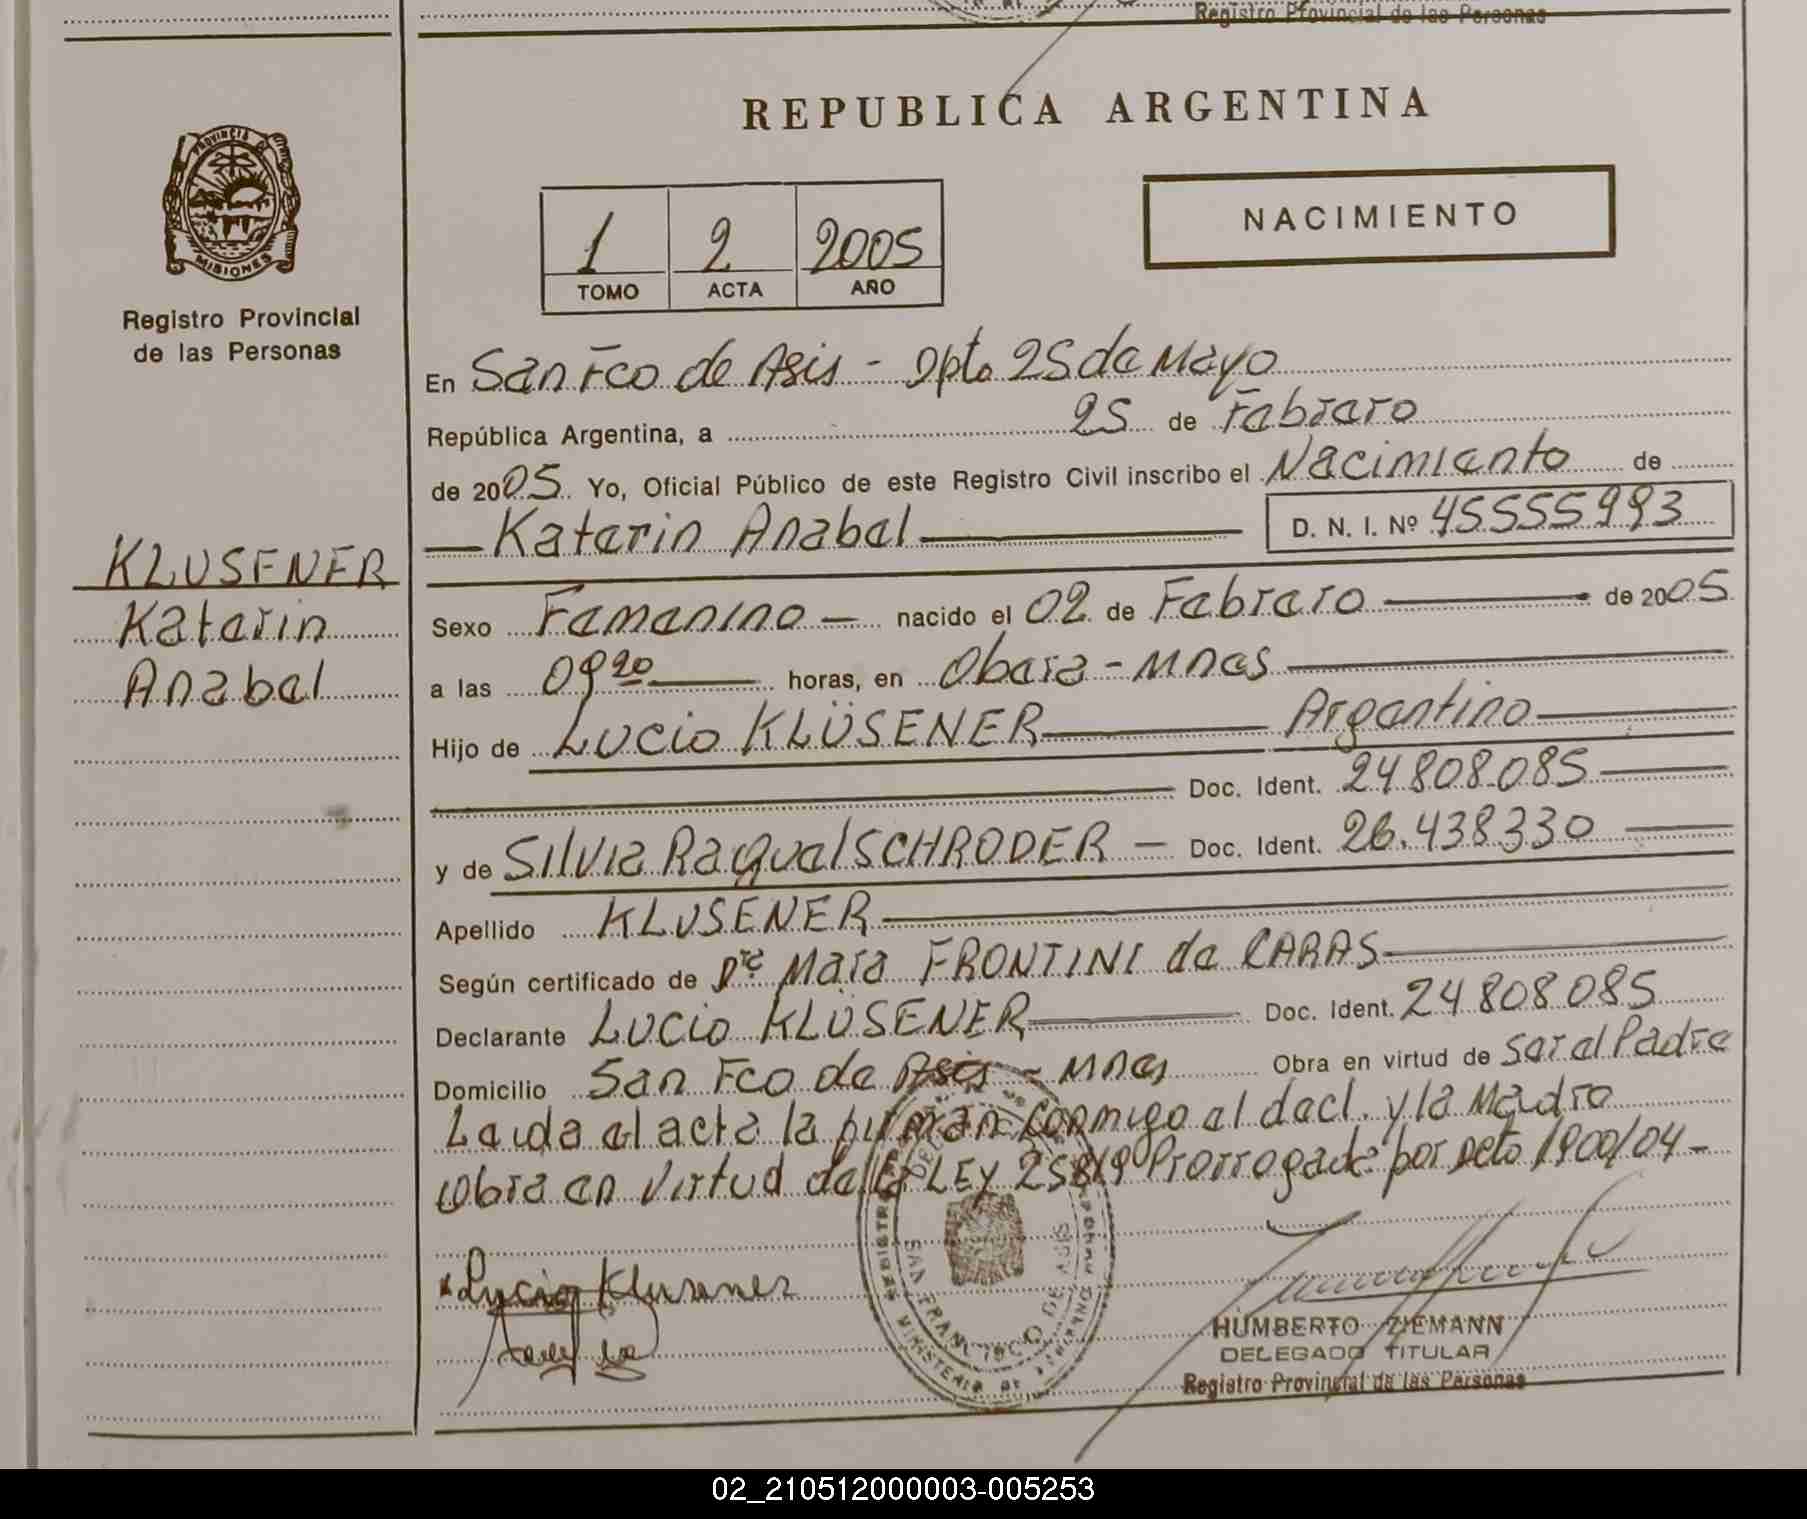 Registro Provincial de las Personas
PROVINCIA DE
MISIONES
Registro Provincial
de las Personas
KLUSENER
Katerin
Anabel
REPUBLICA ARGENTINA
1 2 2005
TOMO ACTA AÑO
NACIMIENTO
En San Fco de Asis - Dpto 25 de Mayo
República Argentina, a 25 de Febrero
de 2005 Yo, Oficial Público de este Registro Civil inscribo el Nacimiento de
Katerin Anabel D. N. I. Nº 45555993
Sexo Femenino nacido el 02 de Febrero de 2005
a las 09 20 horas, en Obera - Mnes
Hijo de Lucio KLÜSENER Argentino
Doc. Ident. 24.808.085
y de Silvia Raquel SCHRODER Doc. Ident. 26.438330
Apellido KLUSENER
Según certificado de Dra Mara FRONTINI de CARAS
Declarante Lucio KLÜSENER Doc. Ident. 24808085
Domicilio San Fco de Asis - Mnes Obra en virtud de Ser el Padre
Leida el acta la firman conmigo el decl. y la Madre
Obra en Virtud de la LEY 25819 Prorrogada por Dcto 1900/04 -
Lucio Klusener
SAN FRANCISCO DE ASIS
MINISTERIO DE GOBIERNO
HUMBERTO ZIEMANN
DELEGADO TITULAR
Registro Provincial de las Personas
02_210512000003-005253